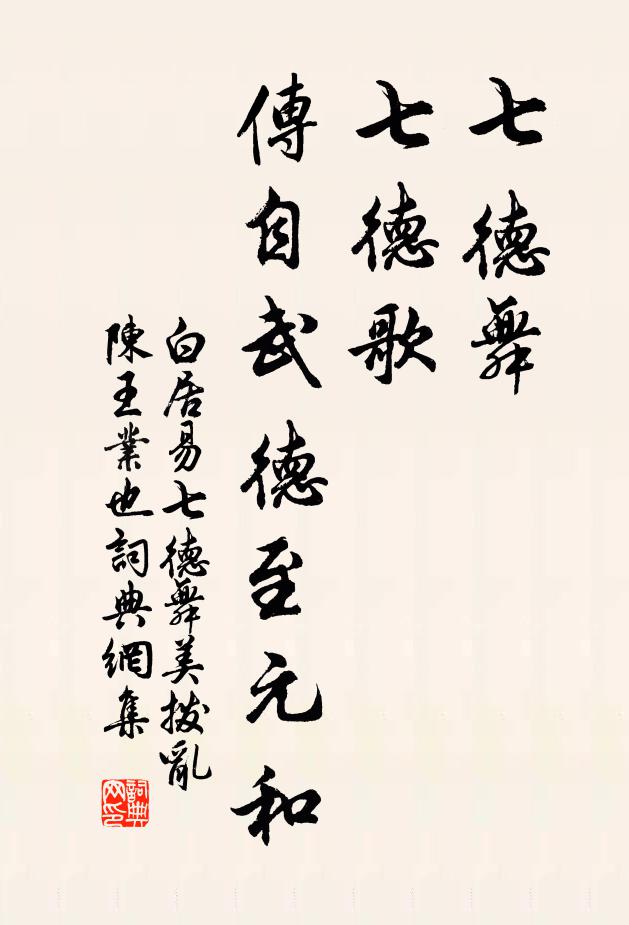 七德舞
七德歌
傳自武德至元和
白居易七德舞美撥亂
陳王業也詞典網集
詞典網印